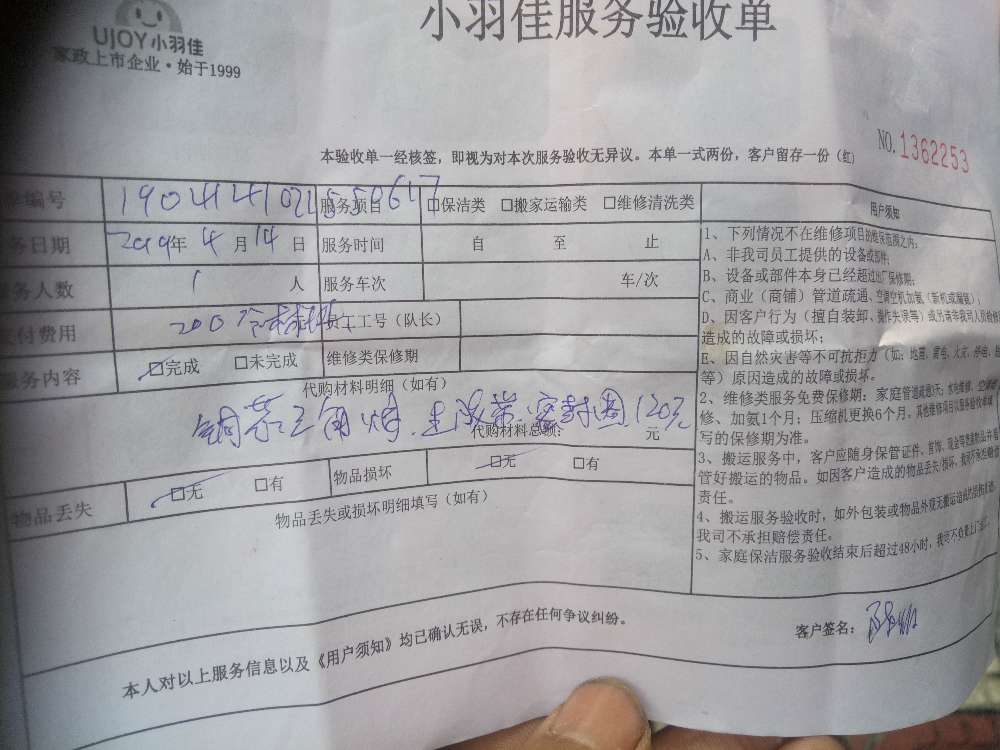 UJOY小羽佳
家政上市企业·始于1999
小羽佳服务验收单
本验收单一经核签，即视为对本次服务验收无异议。本单一式两份，客户留存一份（红）
NO.1362253
编号 190414102155 服务项目 □保洁类 □搬家运输类 □维修清洗类
务日期 2019年4月14日 服务时间 自 至 止
服务人数 1 人 服务车次 车/次
付费用 200 员工工号（队长）
服务内容 □完成 □未完成 维修类保修期
代购材料明细（如有）
三角 密封圈 120元
代购材料总额： 元
物品丢失 □无 □有 物品损坏 □无 □有
物品丢失或损坏明细填写（如有）
用户须知
1、下列情况不在维修项目的维保范围之内：
A、非我司员工提供的设备或部件；
B、设备或部件本身已经超过出厂保修期；
C、商业（商铺）管道疏通、空调空机加氨（新机或漏氨）；
D、因客户行为（擅自装卸、操作失误等）或另请非我司人员检修
造成的故障或损坏；
E、因自然灾害等不可抗拒力（如：地震、雷电、火灾、
等）原因造成的故障或损坏。
2、维修类服务免费保修期：家庭管道疏通3天；
修、加氨1个月；压缩机更换6个月。其他维修项目以服务验收单填
写的保修期为准。
3、搬运服务中，客户应随身保管证件、首饰、现金等贵重物品并看
管好搬运的物品。如因客户造成的物品丢失/损坏，我司不承担赔偿
责任。
4、搬运服务验收时，如外包装或物品外观无搬运造成的损坏痕迹，
我司不承担赔偿责任。
5、家庭保洁服务验收结束后超过48小时，我司不负责上门返工。
本人对以上服务信息以及《用户须知》均已确认无误，不存在任何争议纠纷。
客户签名：